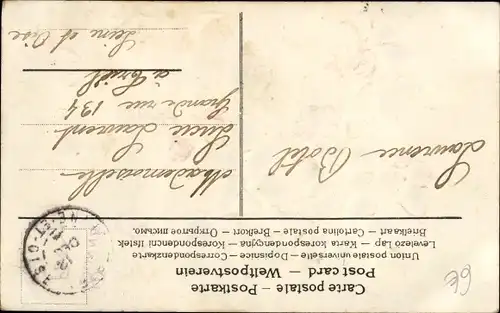 Carte postale – Postkarte
Post card – Weltpostverein
Union postale universelle – Dopisnice – Correspondenzkarte
Levelező Lap – Karta korespondencyjna – Korespondenční lístek
Briefkaart – Cartolina postale – Brefkort – Открытое письмо.
Laurence Botel
Mademoiselle
Lucie Laurent
Grande rue 134
à Triel
Seine et Oise
6€